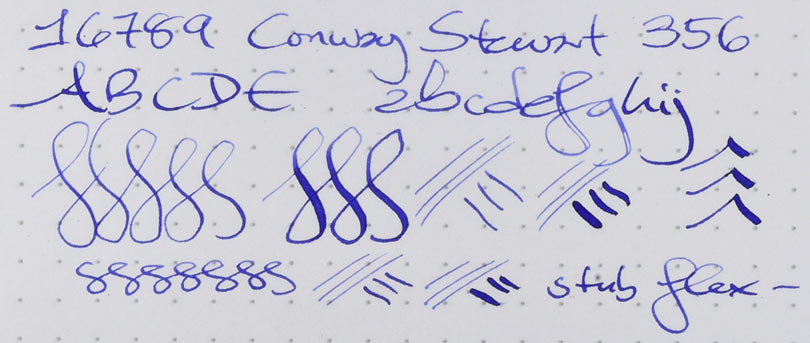 16789 Conway Stewart 356
ABCDE abcdefghij
stub flex -